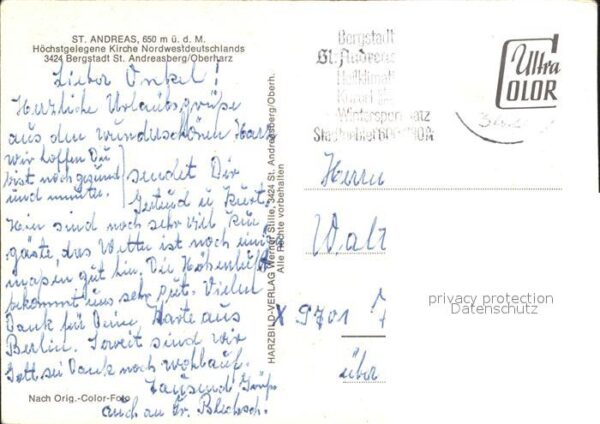 ST. ANDREAS, 650 m ü. d. M.
Höchstgelegene Kirche Nordwestdeutschlands
3424 Bergstadt St. Andreasberg/Oberharz
Lieber Onkel!
Herzliche Urlaubsgrüße
aus dem wunderschönen Harz
wir hoffen Du
bist noch gesund
und munter.
sendet Dir
Gertrud u Kurt.
Hier sind noch sehr viel Kur-
gäste, das Wetter ist noch einig
maßen gut hin. Die Höhenluft
bekommt uns sehr gut. Vielen
Dank für Deine Karte aus
Berlin. Soweit sind wir
Gott sei Dank noch wohlauf.
Tausend Grüße
auch an Gr.
Nach Orig.-Color-Foto
HARZBILD-VERLAG Werner Stille, 3424 St. Andreasberg/Oberh.
Alle Rechte vorbehalten
Bergstadt
St. Andreas
Heilklimat
Kurort
Wintersportplatz
Ultra
COLOR
Herrn
Walz
X 9701
über
privacy protection
Datenschutz